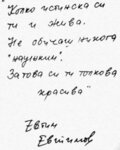 Колко истинска си
ти и жива.
Не обичаш никога
"наужким".
Затова си ти толкова
красива"
Евтим
Евтимов